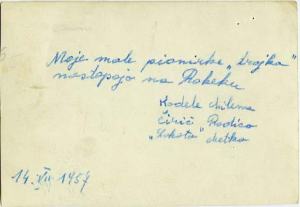 Moje male pionirke „trojka"
nastopajo na Rakeku
Kodele Milena
Čirić Radica
„Lokota" Metka
14. VII 1957